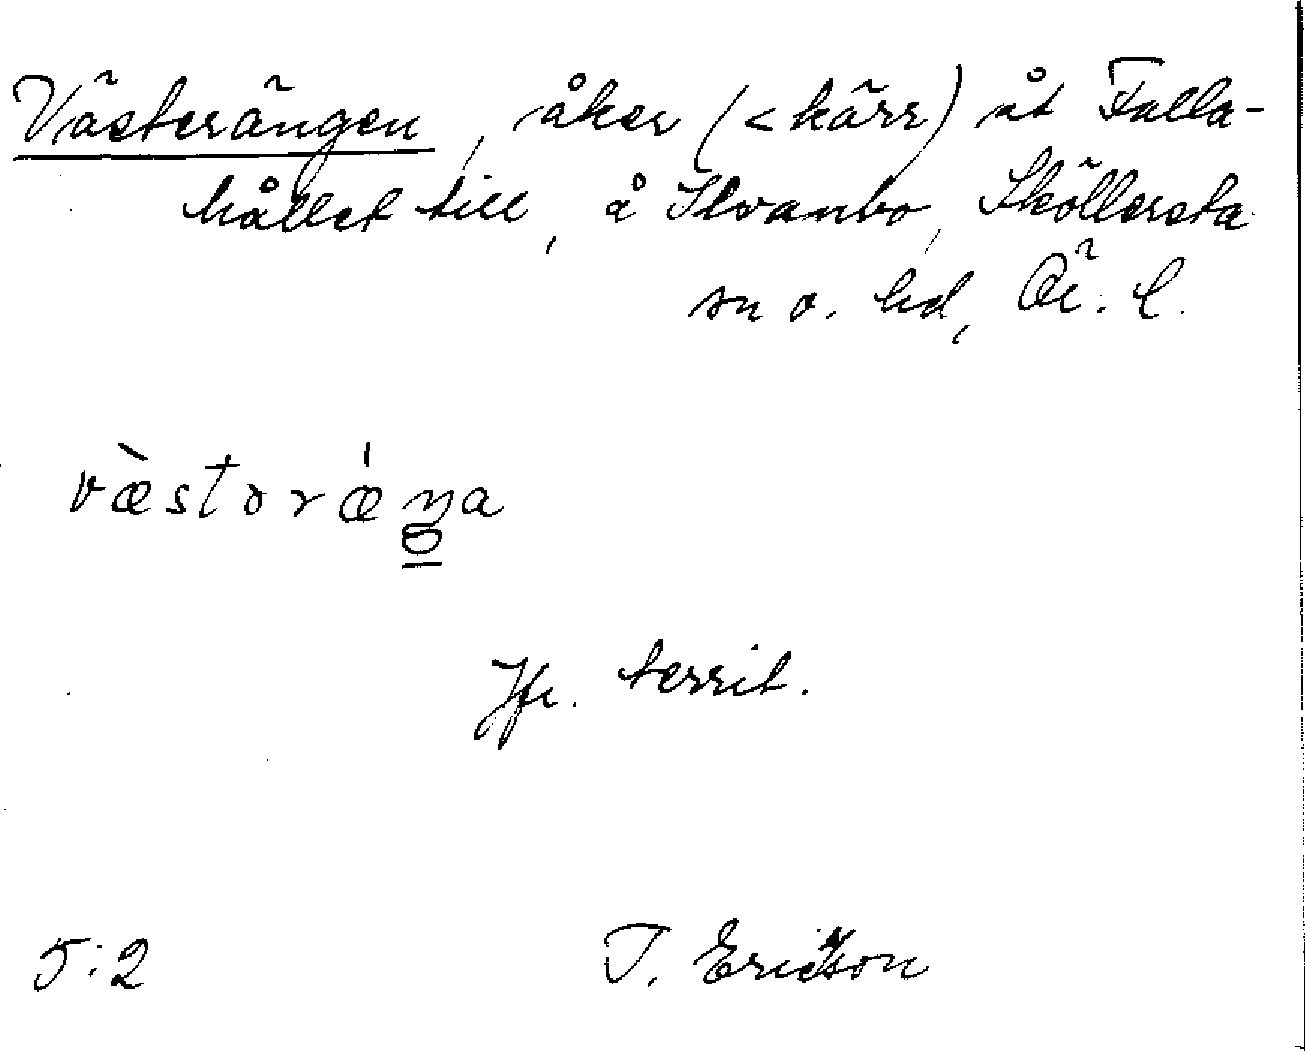 Västerängen, åker (< kärr) åt Falla-
hållet till, å Ilvanbo, Sköllersta
sn o. hd, Ör. l.
væ̀stərǽŋa
Jfr. territ.
5:2 T. Ericson